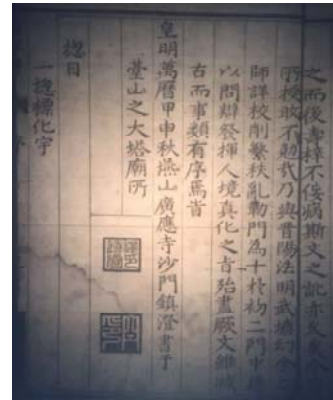 之而後壽梓不佞病斯文之訛亦久矣今
所授敢不勉哉乃與晉陽法明武塘幻余二
師詳校削繁秩亂勒門為十於初二門中雜
以問辯發揮人境真化之旨殆盡厥文雖減
右而事類有序焉旹
皇明萬曆甲申秋燕山廣應寺沙門鎮澄書于
臺山之大塔廟所
總目
一總標化宇